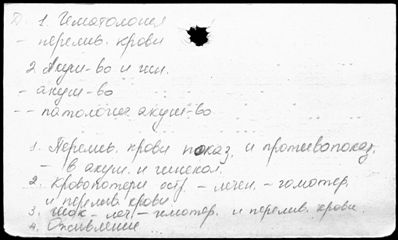 Д. 1. Гематология
- перелив. крови
2. Акуш-во и гин.
- акуш-во
-- патология акуш-во
1. Перелив. крови показ. и противопоказ.
- в акуш. и гинекол.
2. Кровопотери остр. - лечен. - гемотер.
и перелив. крови
3. Шок - леч - гемотер. и перелив. крови
4. Оживление